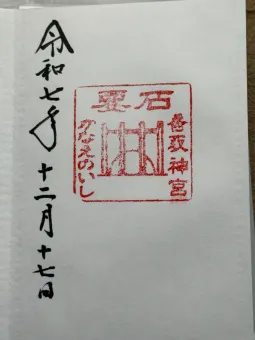 令和七年 十二月十七日
要石
香取神宮
かなめのいし